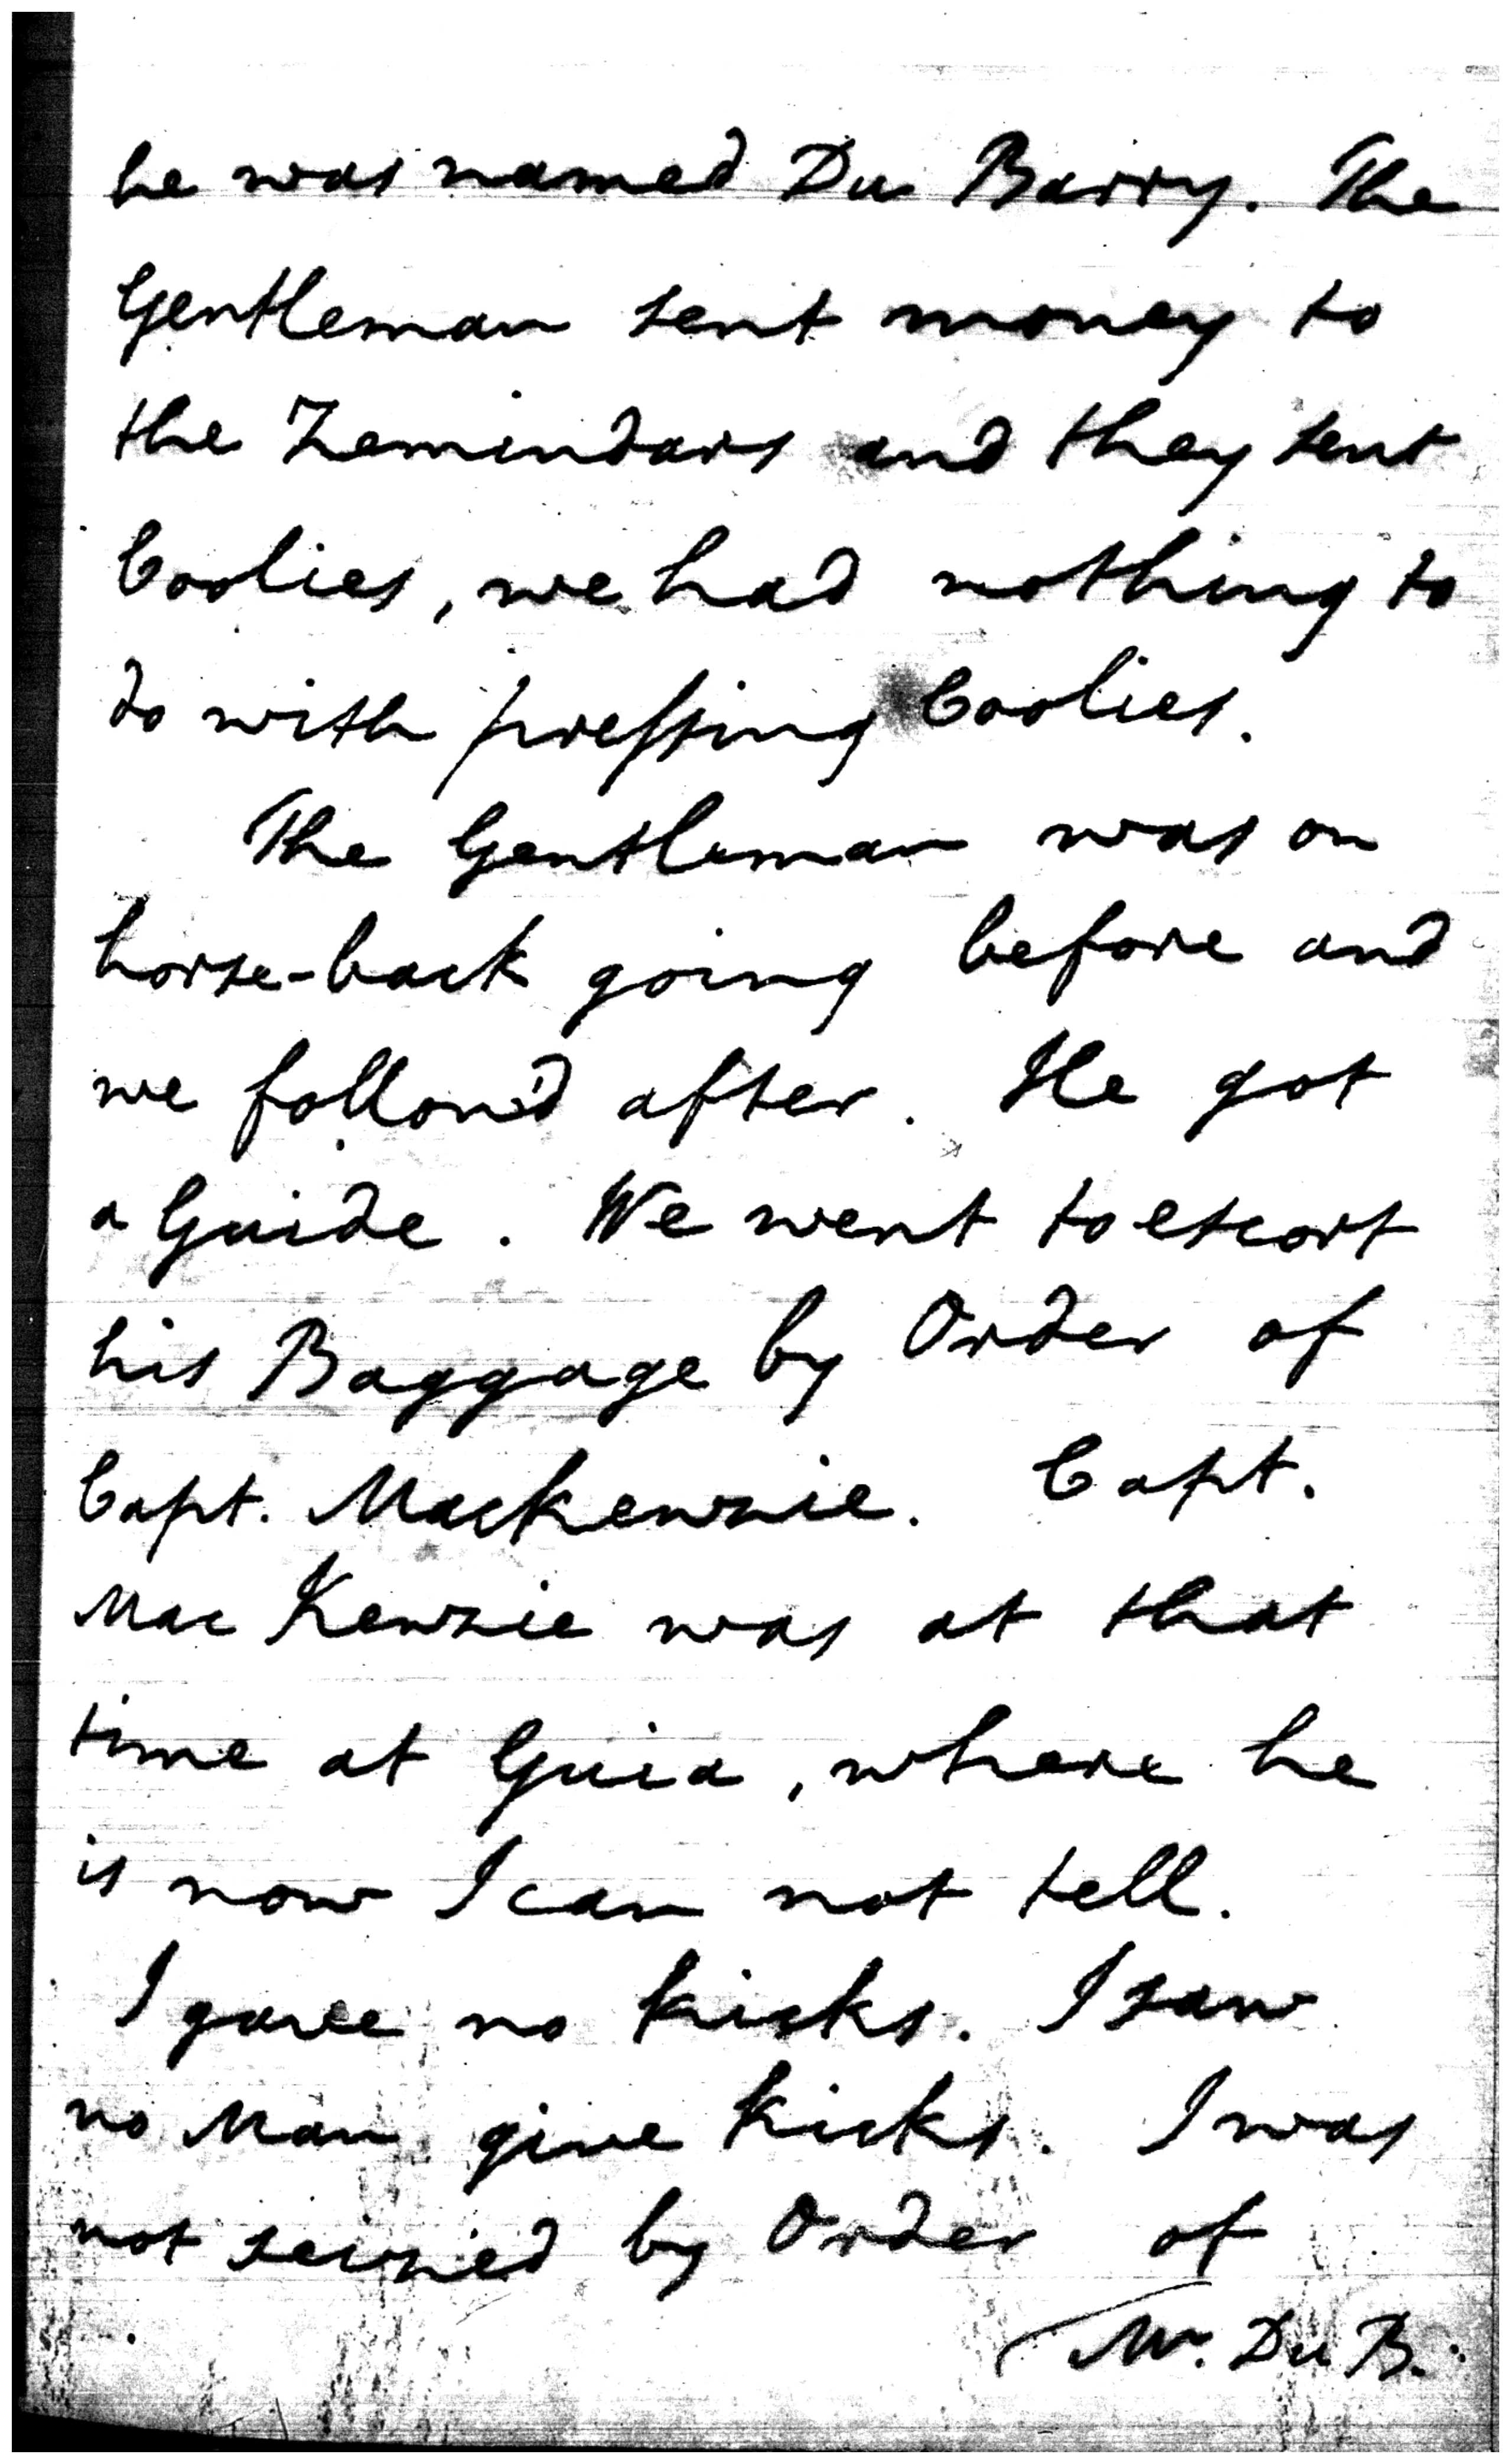 he was named Du Barry. The
Gentleman sent money to
the Zemindars and they sent
Coolies, we had nothing to
do with preſsing Coolies.
The Gentleman was on
horse-back going before and
we follow'd after. He got
a Guide. We went to escort
his Baggage by Order of
Capt. Mackenzie. Capt.
Mac Kenzie was at that
time at Guia, where he
is now I can not tell.
I gave no kicks. I saw
no Man give kicks. I was
not seized by Order of
Mr. Du B.